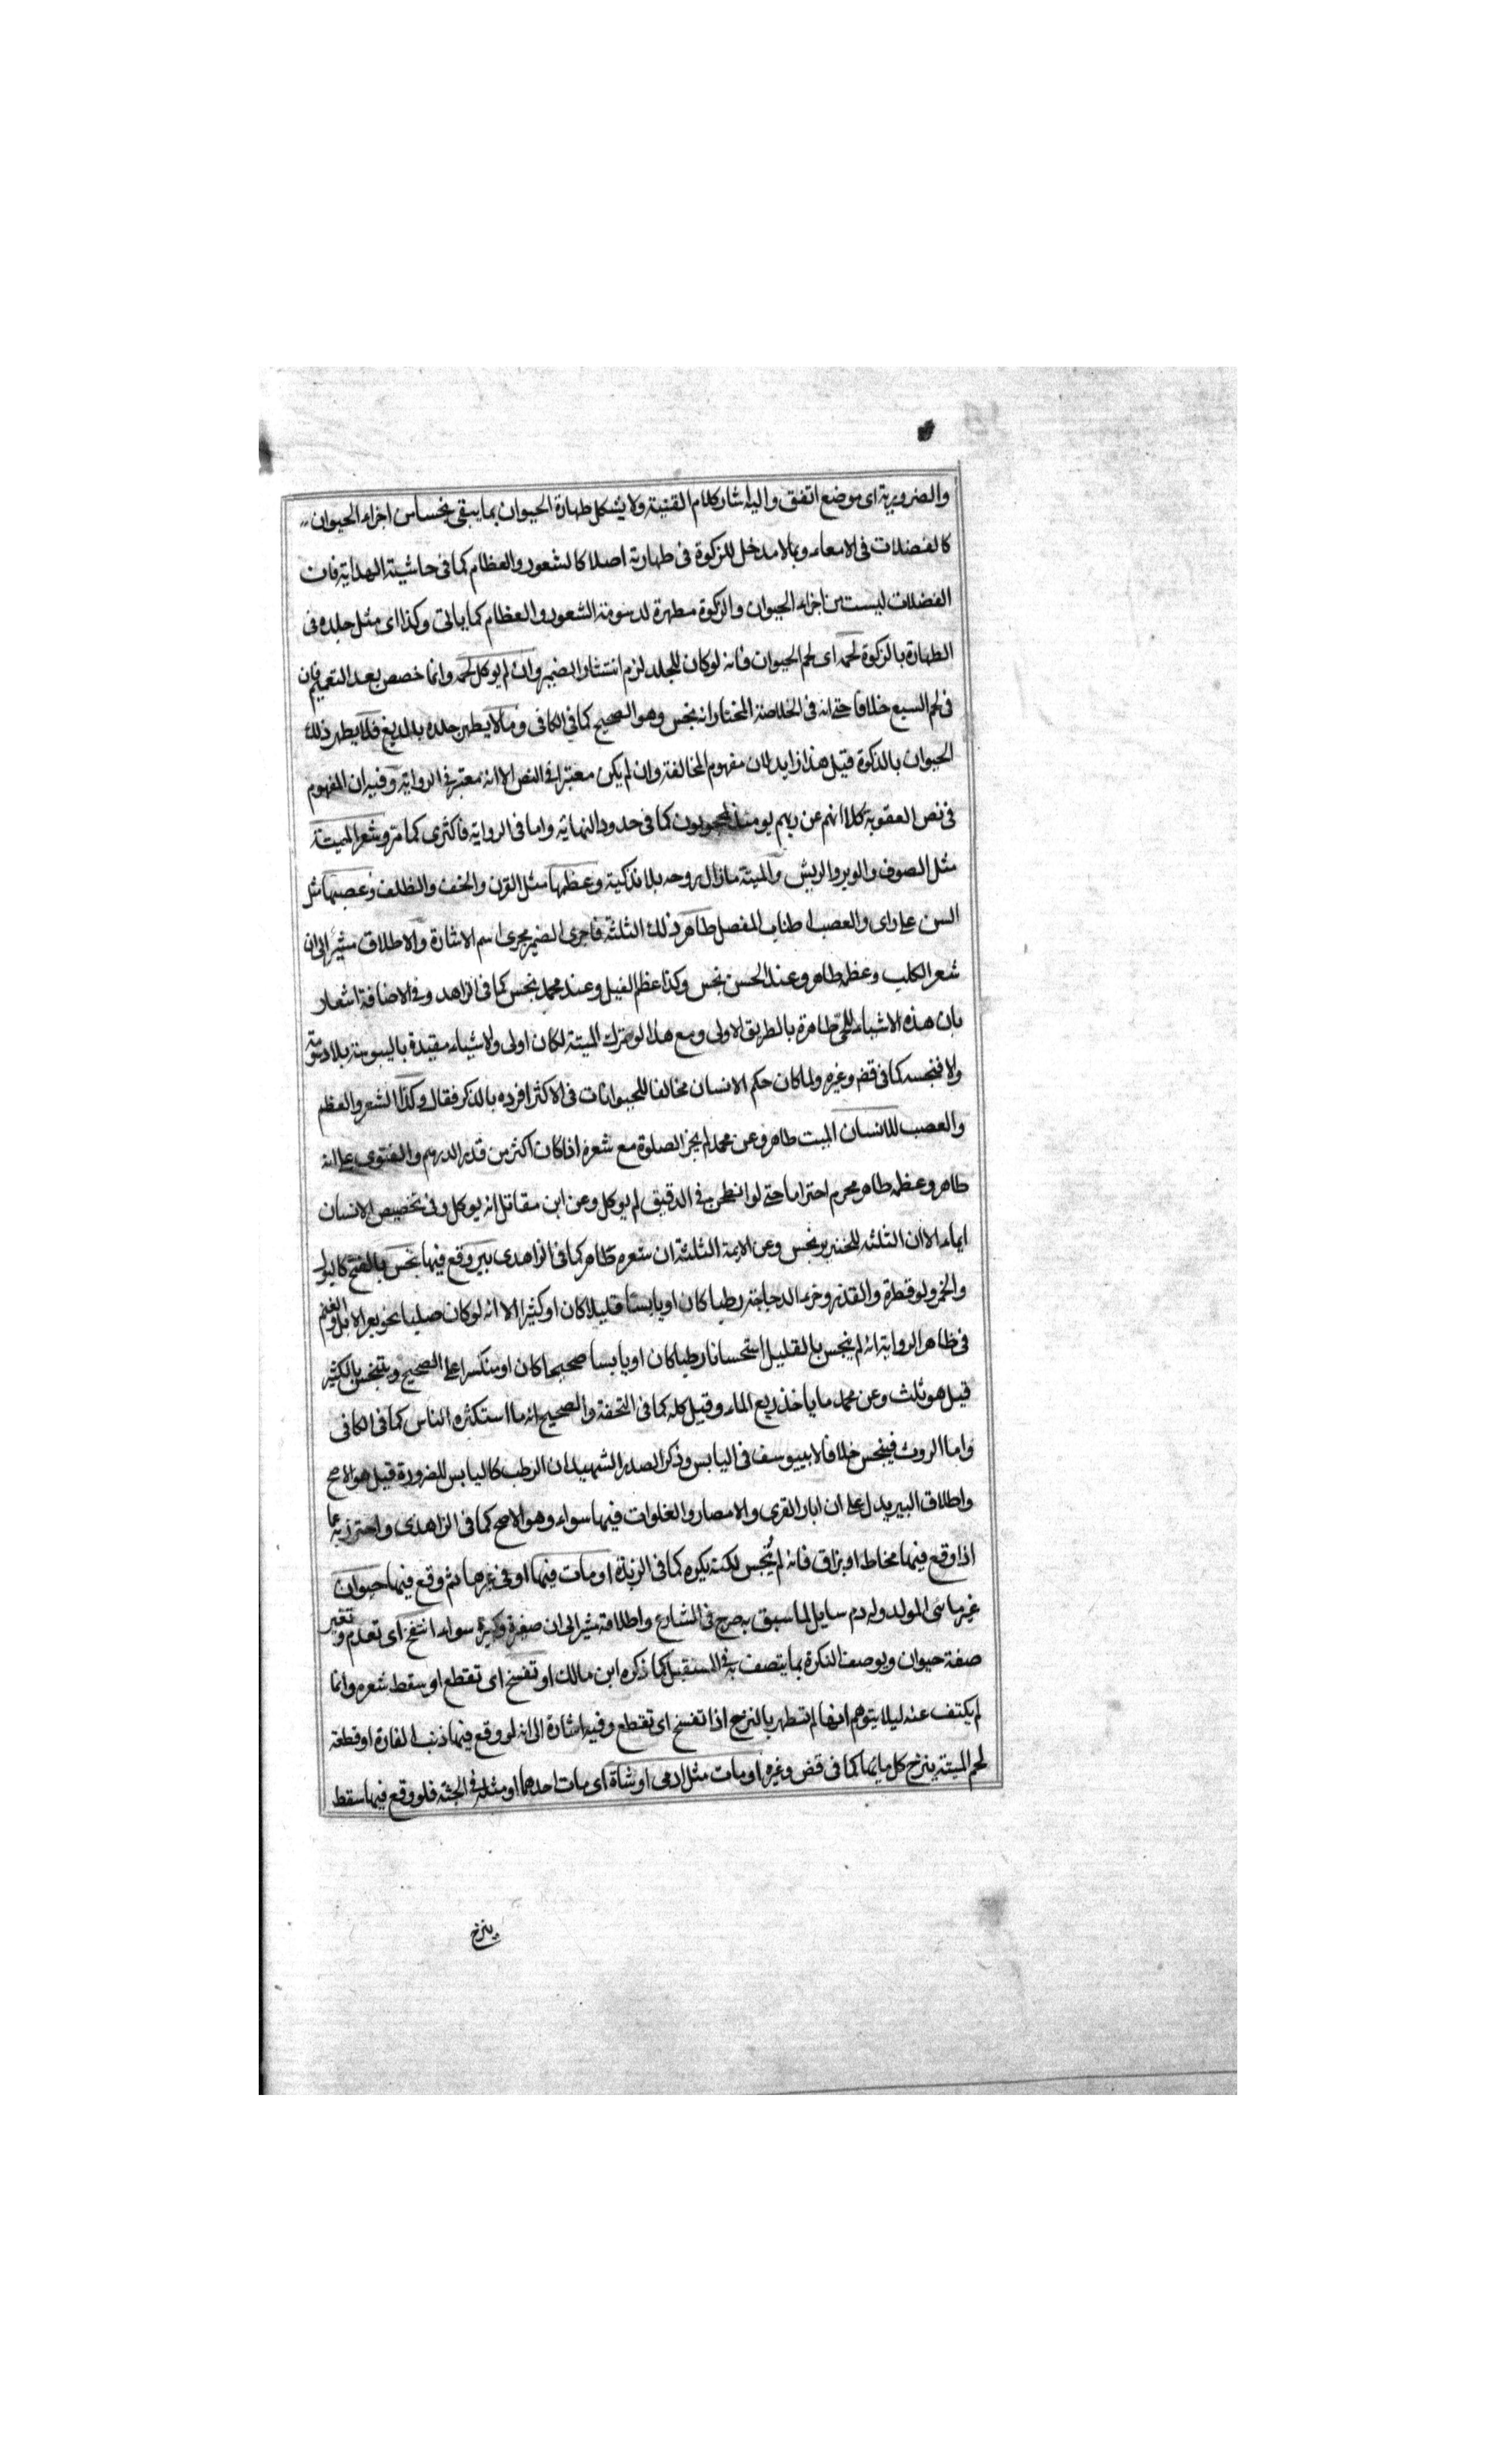 والضرورية اى موضع اتفق واليه اشار كلام القنية ولا يشكل طهارة الحيوان بما يبقى نجسا من اجزاء الحيوان
كالفضلات فى الامعاء وبما لا مدخل للزكوة فى طهارته اصلا كالشعور والعظام كما فى حاشية الهداية فان
الفضلات ليست من اجزاء الحيوان والزكوة مطهرة لدسومة الشعور والعظام كما ياتى وكذا اى مثل جلده فى
الطهارة بالزكوة لحمه اى لحم الحيوان فانه لو كان للجلد لزم انتشار الضمير وان لم يوكل لحمه وانما خصص بعد التعميم فان
فى لحم السبع خلافا حتى انه فى الخلاصة المختار انه نجس وهو الصحيح كما فى الكافى وما لا يطهر جلده بالدبغ فلا يطهر ذلك
الحيوان بالذكوة قيل هذا زايد لان مفهوم المخالفة وان لم يكن معتبرا فى النص الا انه معتبر فى الرواية وفيه ان المفهوم
فى نص العقوبة كلا انهم عن ربهم يومئذ لمحجوبون كما فى حدود النهاية واما فى الرواية فاكثرى كما مر وشعر الميتة
مثل الصوف والوبر والريش والميتة ما زال روحه بلا تذكية وعظمها مثل القرن والخف والظلف وعصبها مثل
السن على راى والعصب اطناب المفصل طاهر ذلك الثلثة فاجرى الضمير مجرى اسم الاشارة والاطلاق مشير الى ان
شعر الكلب وعظمه طاهر وعند الحسن نجس وكذا عظم الفيل وعند محمد نجس كما فى الزاهد وفى الاضافة اشعار
بان هذه الاشياء للحى طاهرة بالطريق الاولى ومع هذا لو ترك الميتة لكان اولى والاشياء مقيدة باليبوسة بلا دسومة
والا فنجسه كما فى قض وغيره ولما كان حكم الانسان مخالفا للحيوانات فى الاكثر افرده بالذكر فقال وكذا الشعر والعظم
والعصب للانسان الميت طاهر وعن محمد لم يجز الصلوة مع شعره اذا كان اكثر من قدر الدرهم والفتوى على انه
طاهر وعظمه طاهر محرم احتراما حتى لو انطحن فى الدقيق لم يوكل وعن ابن مقاتل انه يوكل وفى تخصيص الانسان
ايماء الا ان الثلثة للخنزير نجس وعن الايمة الثلثة ان شعره طاهر كما فى الزاهدى بير وقع فيها نجس بالفتح كالبول
والخمر ولو قطرة والقذر وخرء الدجاجة رطبا كان او يابسا قليلا كان او كثيرا الا انه لو كان صلبا نحو بعر الابل والغنم
فى ظاهر الرواية انه لم ينجس بالقليل استحسانا رطبا كان او يابسا صحيحا كان او منكسرا على الصحيح ويتنجس بالكثير
قيل هو ثلث وعن محمد ما ياخذ ربع الماء وقيل كله كما فى التحفة والصحيح انه ما استكثره الناس كما فى الكافى
واما الروث فينجس خلافا لابييوسف فى اليابس وذكر الصدر الشهيد ان الرطب كاليابس للضرورة قيل هو الاصح
واطلاق البير يدل على ان ابار القرى والامصار والفلوات فيها سواء وهو الاصح كما فى الزاهدى واحترز به عما
اذا وقع فيها مخاط او بزاق فانه لم ينجس لكنه يكره كما فى الزيادة او مات فيها او فى غيرها ثم وقع فيها حيوان
غير مائى المولد وله دم سايل لما سبق به صرح فى الشارع واطلاقه مشير الى ان صغيره وكبيره سواء انتفخ اى تعدم وتغير
صفة حيوان ويوصف النكرة بما يتصف به فى المستقبل كما ذكره ابن مالك او تفسخ اى تقطع او سقط شعره وانما
لم يكتف عنه ليلا يتوهم انها لم تطهر بالنزح اذا تفسخ اى تقطع وفيه اشارة الى انه لو وقع فيها ذنب الفارة او قطعة
لحم الميتة ينزح كل مائها كما فى قض وغيره او مات مثل ادمى او شاة اى مات احدهما او مثله فى الجثة فلو وقع فيها سقط
ينزح